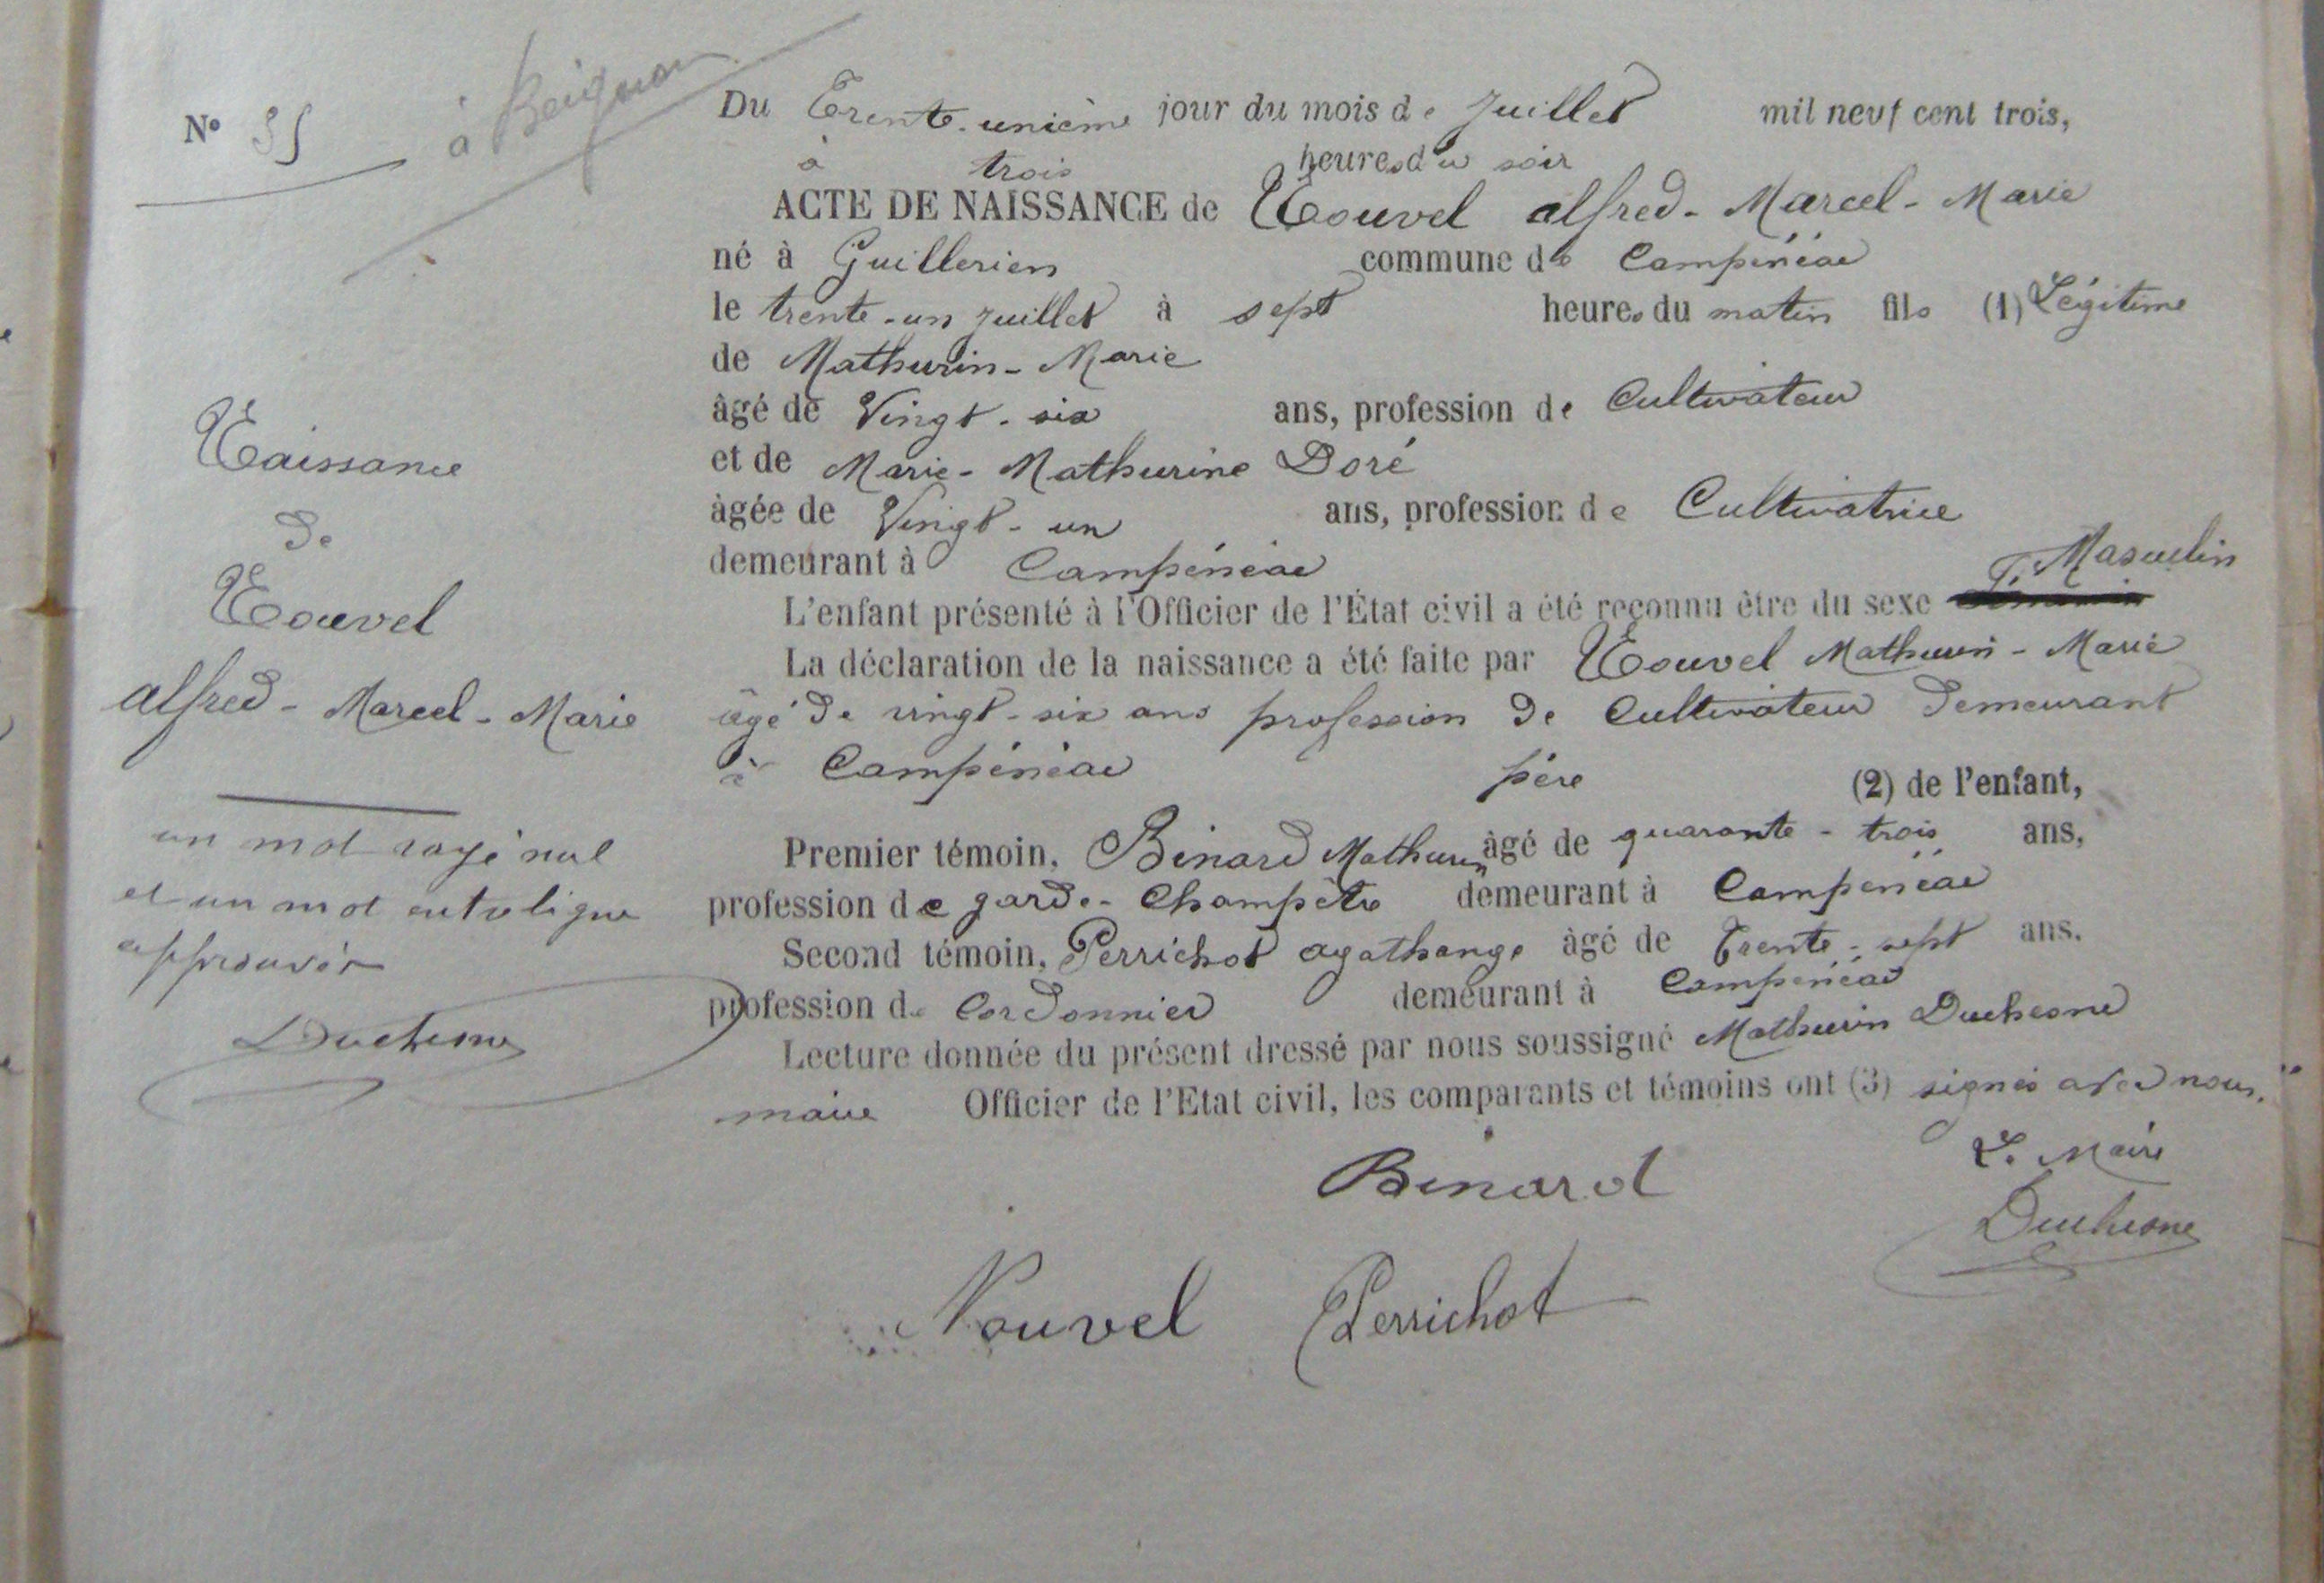 N° 55
à Beignon
Du Trente-unième jour du mois de Juillet mil neuf cent trois,
à trois heures du soir
ACTE DE NAISSANCE de Nouvel alfred - Marcel - Marie
né à Guillerien commune de Campénéac
le trente-un juillet à sept heures du matin fils (1) Légitime
de Mathurin - Marie
âgé de Vingt-six ans, profession de Cultivateur
et de Marie - Mathurine Doré
âgée de Vingt-un ans, profession de Cultivatrice
demeurant à Campénéac
Masculin
L'enfant présenté à l'Officier de l'État civil a été reconnu être du sexe
La déclaration de la naissance a été faite par Nouvel Mathurin - Marie
âgé de vingt-six ans profession de Cultivateur demeurant
à Campénéac père (2) de l'enfant,
Premier témoin, Binard Mathurin âgé de quarante - trois ans,
profession de garde-Champêtre demeurant à Campénéac
Second témoin, Perrichot agathange âgé de Trente-sept ans.
profession de Cordonnier demeurant à Campénéac
Lecture donnée du présent dressé par nous soussigné Mathurin Duchesne
maire Officier de l'Etat civil, les comparants et témoins ont (3) signés avec nous.
Naissance
de
Nouvel
alfred - Marcel - Marie
un mot rayé nul
et un mot entreligne
approuvés
Duchesne
Binard
Le Maire
Duchesne
Nouvel Perrichot